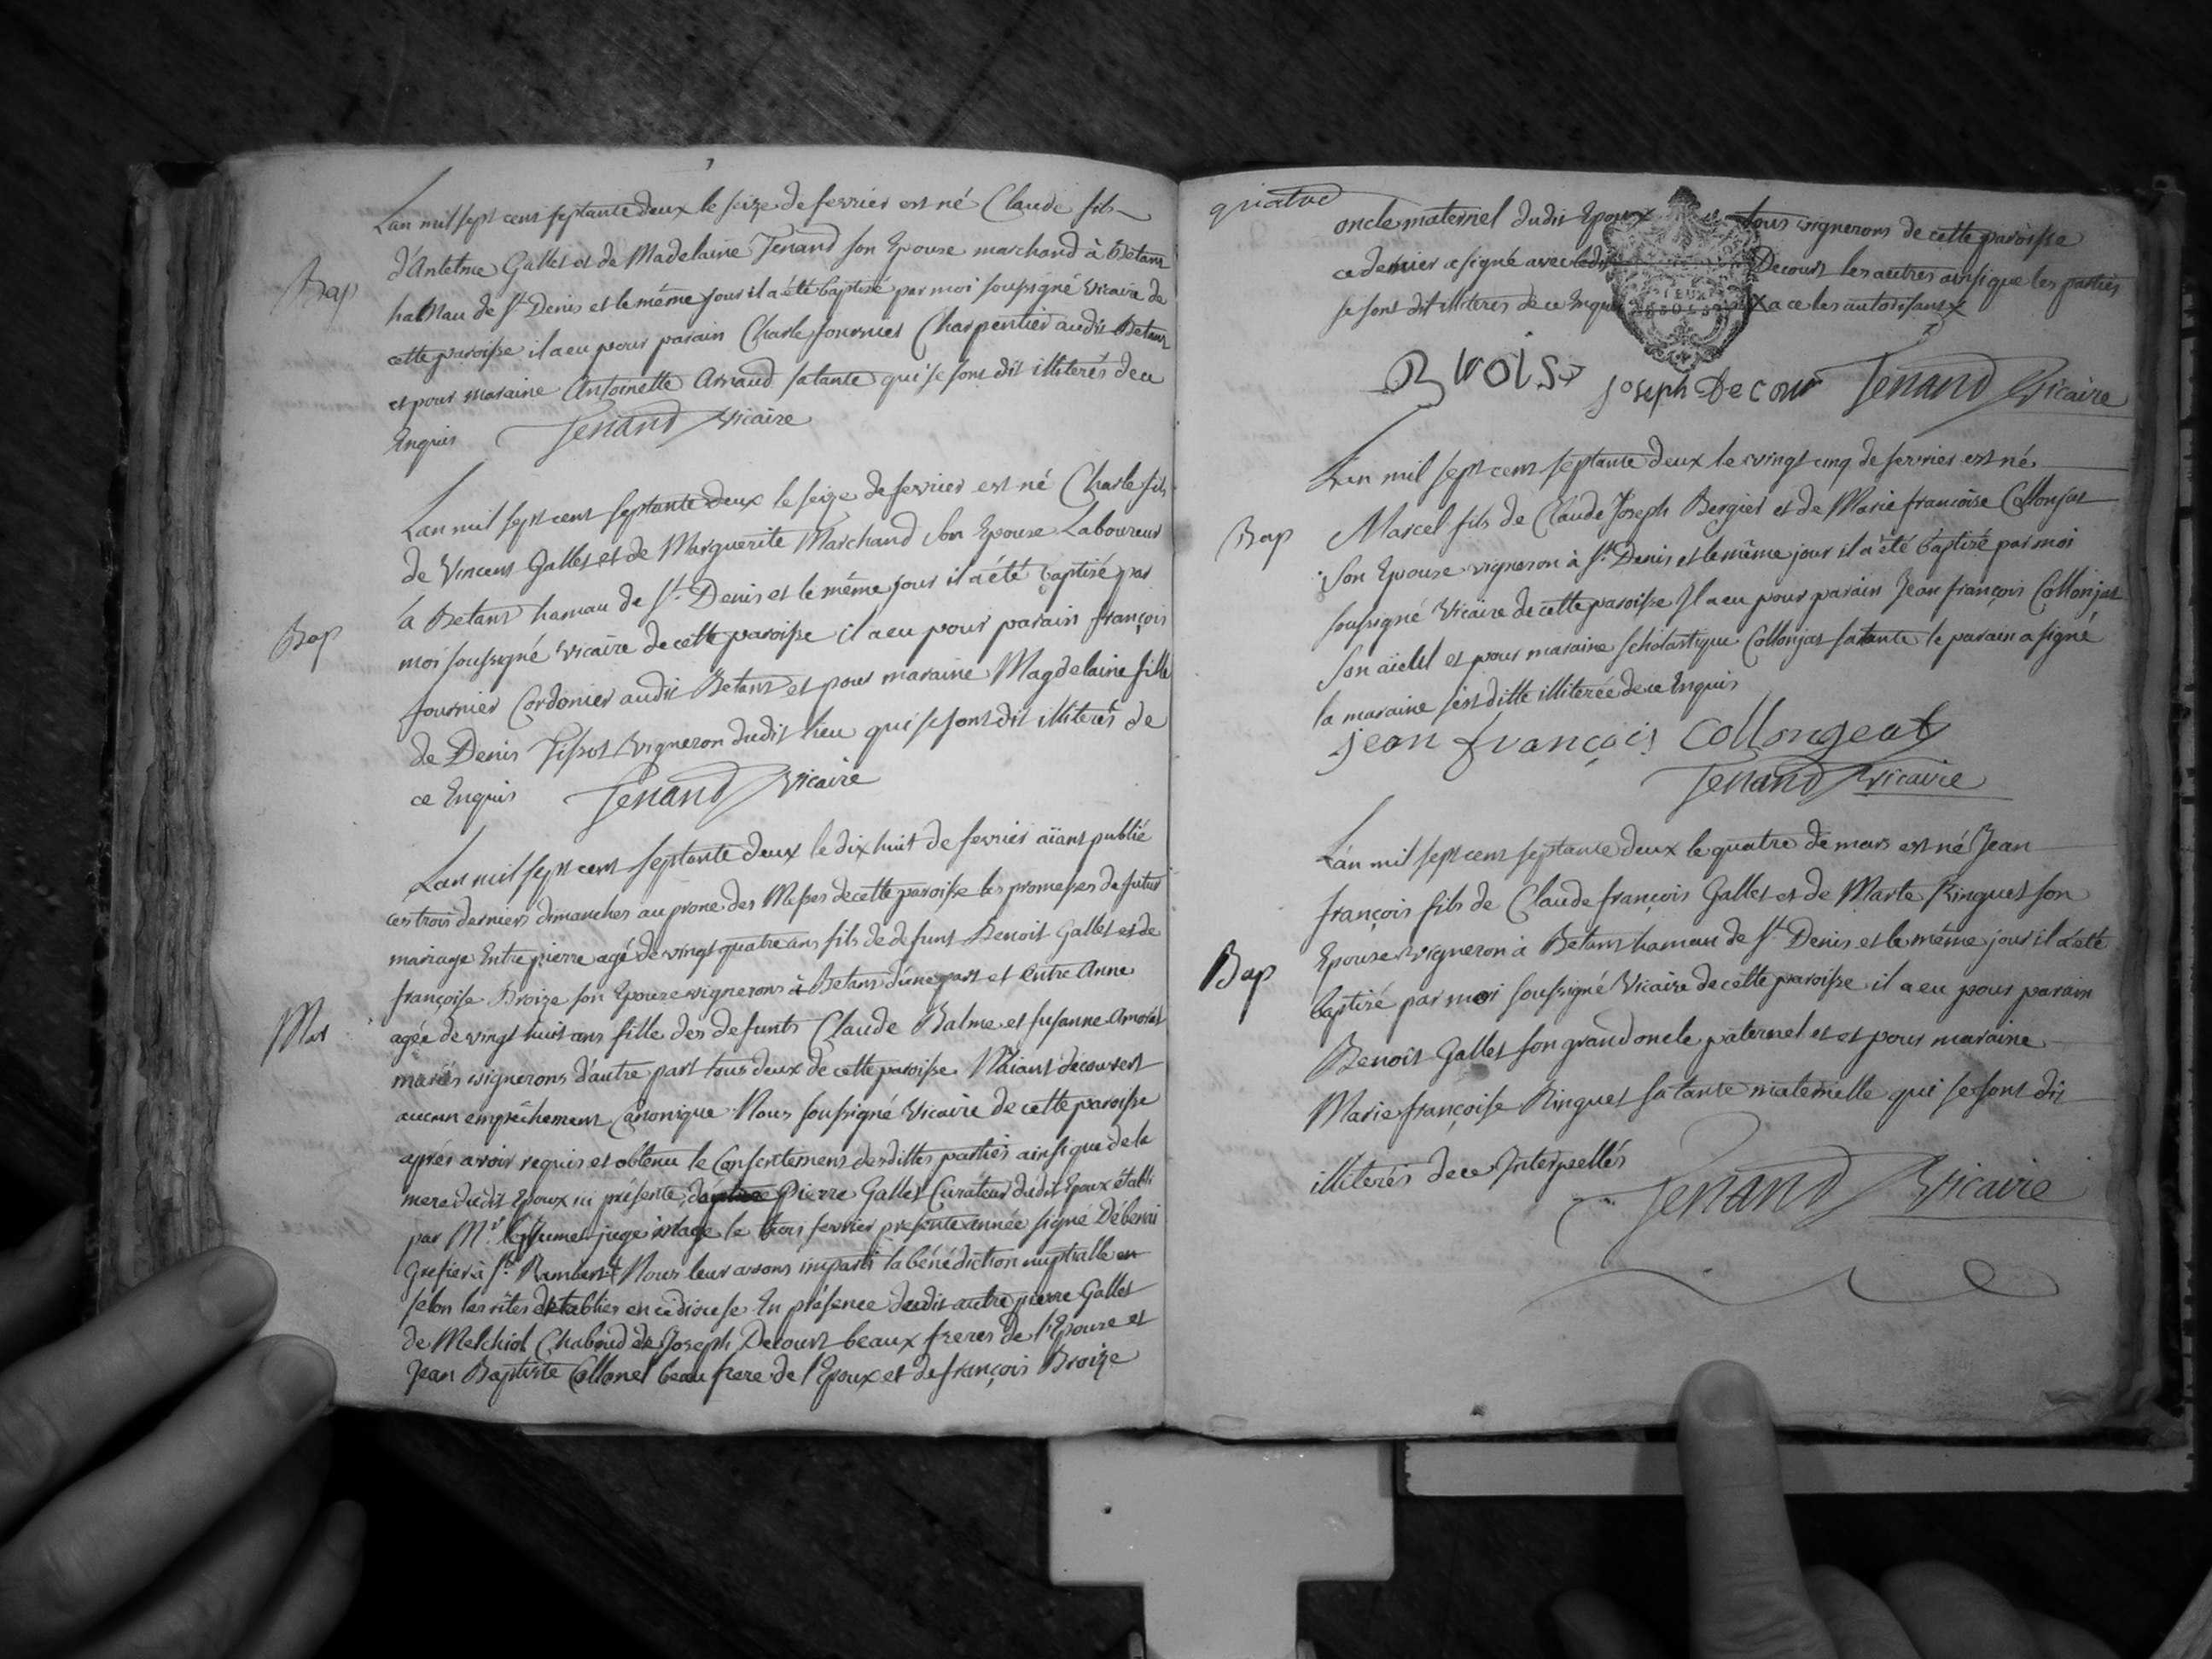 Bap
Lan mil sept cent septante deux le seize de fevrier est né Claude fils
d'Antelme Gallet et de Madelaine Tenand son Epouse marchand à Betant
hameau de St Denis et le même jour il a été baptisé par moi soussigné vicaire de
cette paroisse il a eu pour parain Charle fournier Charpentier audit Betant
et pour maraine Antoinette Arnaud sa tante qui se sont dit illiterés de ce
Enquis Tenand Vicaire
Bap
Lan mil sept cent septante deux le seize de fevrier est né Charle fils
de Vincent Gallet et de Marguerite Marchand son Epouse Laboureur
à Betant hamau de St Denis et le même jour il a été baptisé par
moi soussigné vicaire de cette paroisse il a eu pour parain françois
fournier Cordonier audit Betant et pour maraine Magdelaine fille
de Denis Tissot vigneron dudit lieu qui se sont dit illiterés de
ce Enquis Tenand Vicaire
Mar
Lan mil sept cent septante deux le dix huit de fevrier aïant publié
ces trois derniers dimanches au prone des Messes de cette paroisse les promesses de futur
mariage Entre pierre agé de vingt quatre ans fils de defunt Benoit Gallet et de
françoise Broize son Epouse vignerons à Betant d'une part et Entre Anne
agée de vingt huit ans fille des defunts Claude Balme et Susanne
mariés vignerons d'autre part tous deux de cette paroisse N'aiant decouvert
aucun empêchement Canonique Nous soussigné Vicaire de cette paroisse
aprés avoir requis et obtenu le Consentement desdittes parties ainsi que de la
mere dudit Epoux ici présente Pierre Gallet Curateur dudit Epoux établi
par Mr juge le trois fevrier presente année signé
Grefier à St Rambert Nous leur avons imparti la bénédiction nuptialle
sélon les rites établies en ce diocese En présence dudit autre pierre Gallet
de Melchiol Chaboud de Joseph Decourt beaux freres de l'Epouse et
Jean Baptiste Collonel beau frere de l'Epoux et de françois Broize
quatre
oncle maternel dudit Epoux tous vignerons de cette paroisse
ce dernier a signé avec ledit Decourt les autres ainsi que les parties
se sont dit illiteres de ce Enquis a ce les autorisant
Joseph Decour Tenand Vicaire
Bap
Lan mil sept cent septante deux le vingt cinq de fevrier est né
Marcel fils de Claude Joseph Bergier et de Marie françoise Collonjat
son Epouse vigneron à St Denis et le même jour il a été baptisé par moi
soussigné Vicaire de cette paroisse Il a eu pour parain Jean françois Collonjat
son aïeul et pour maraine Scholastique Collonjat sa tante le parain a signé
la maraine s'est ditte illiterée de ce Enquis
jean françois Collongeat
Tenand Vicaire
Bap
Lan mil sept cent septante deux le quatre de mars est né Jean
françois fils de Claude françois Gallet et de Marte Ringuet son
Epouse vigneron à Betant hamau de St Denis et le même jour il a été
baptisé par moi soussigné Vicaire de cette paroisse il a eu pour parain
Benoit Gallet son grand oncle paternel et et pour maraine
Marie françoise Ringuet sa tante maternelle qui se sont dit
illiterés de ce Interpellés
Tenand Vicaire